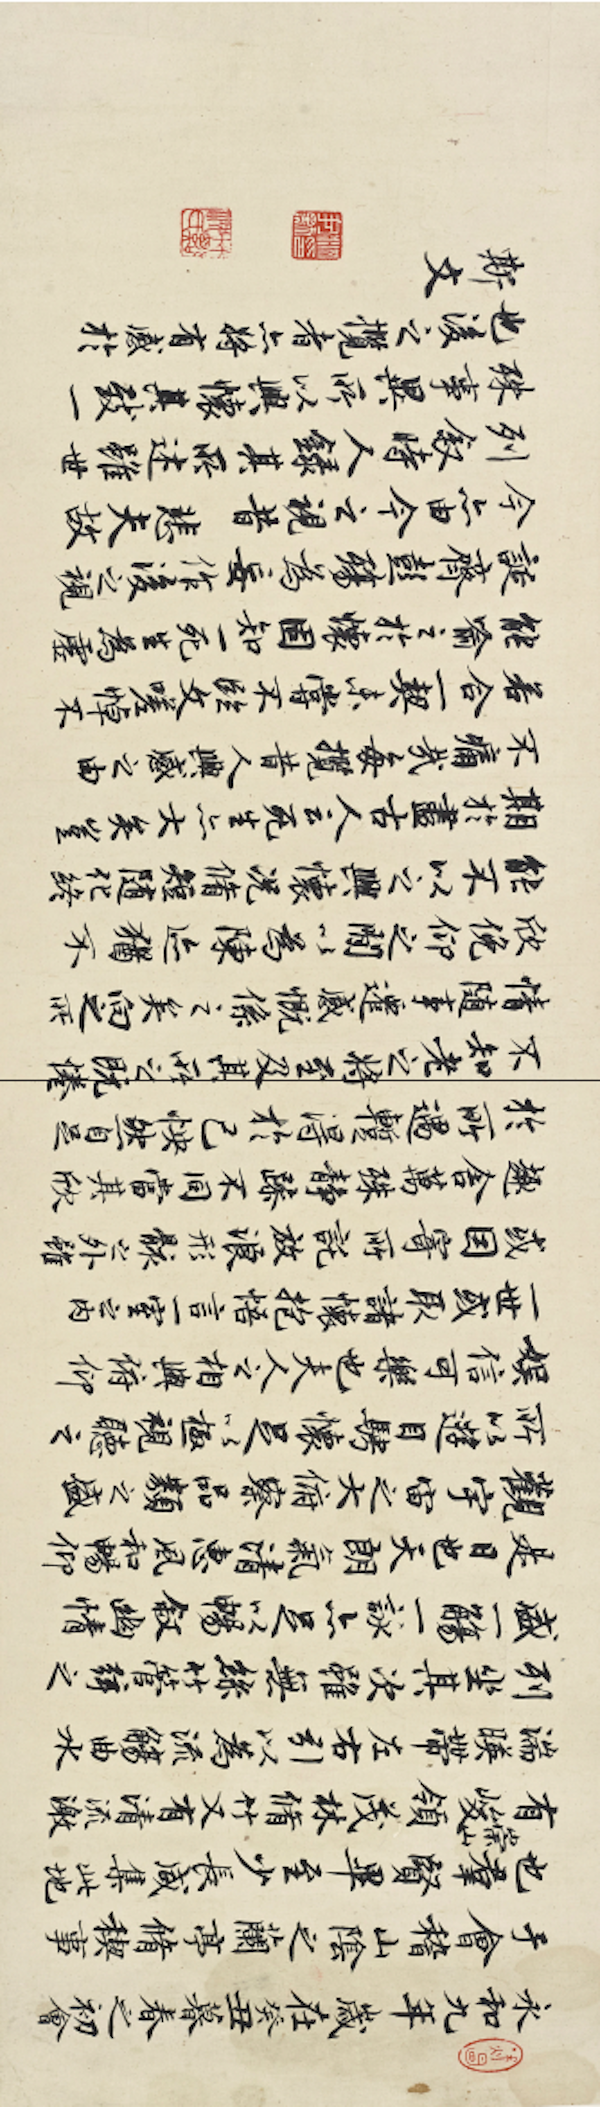 永和九年歲在癸丑暮春之初會
于會稽山陰之蘭亭脩稧事
也羣賢畢至少長咸集此地
有崇山峻領茂林脩竹又有清流激
湍暎帶左右引以為流觴曲水
列坐其次雖無絲竹管絃之
盛一觴一詠亦足以暢敘幽情
是日也天朗氣清惠風和暢仰
觀宇宙之大俯察品類之盛
所以遊目騁懷足以極視聽之
娛信可樂也夫人之相與俯仰
一世或取諸懷抱悟言一室之內
或因寄所託放浪形骸之外雖
趣舍萬殊靜躁不同當其欣
於所遇暫得於己快然自足
不知老之將至及其所之既惓
情隨事遷感慨係之矣向之所
欣俛仰之間以為陳迹猶不
能不以之興懷況脩短隨化終
期於盡古人云死生亦大矣豈
不痛哉每攬昔人興感之由
若合一契未嘗不臨文嗟悼不
能喻之於懷固知一死生為虛
誕齊彭殤為妄作後之視
今亦由今之視昔悲夫故
列敘時人錄其所述雖世
殊事異所以興懷其致一
也後之攬者亦將有感於
斯文